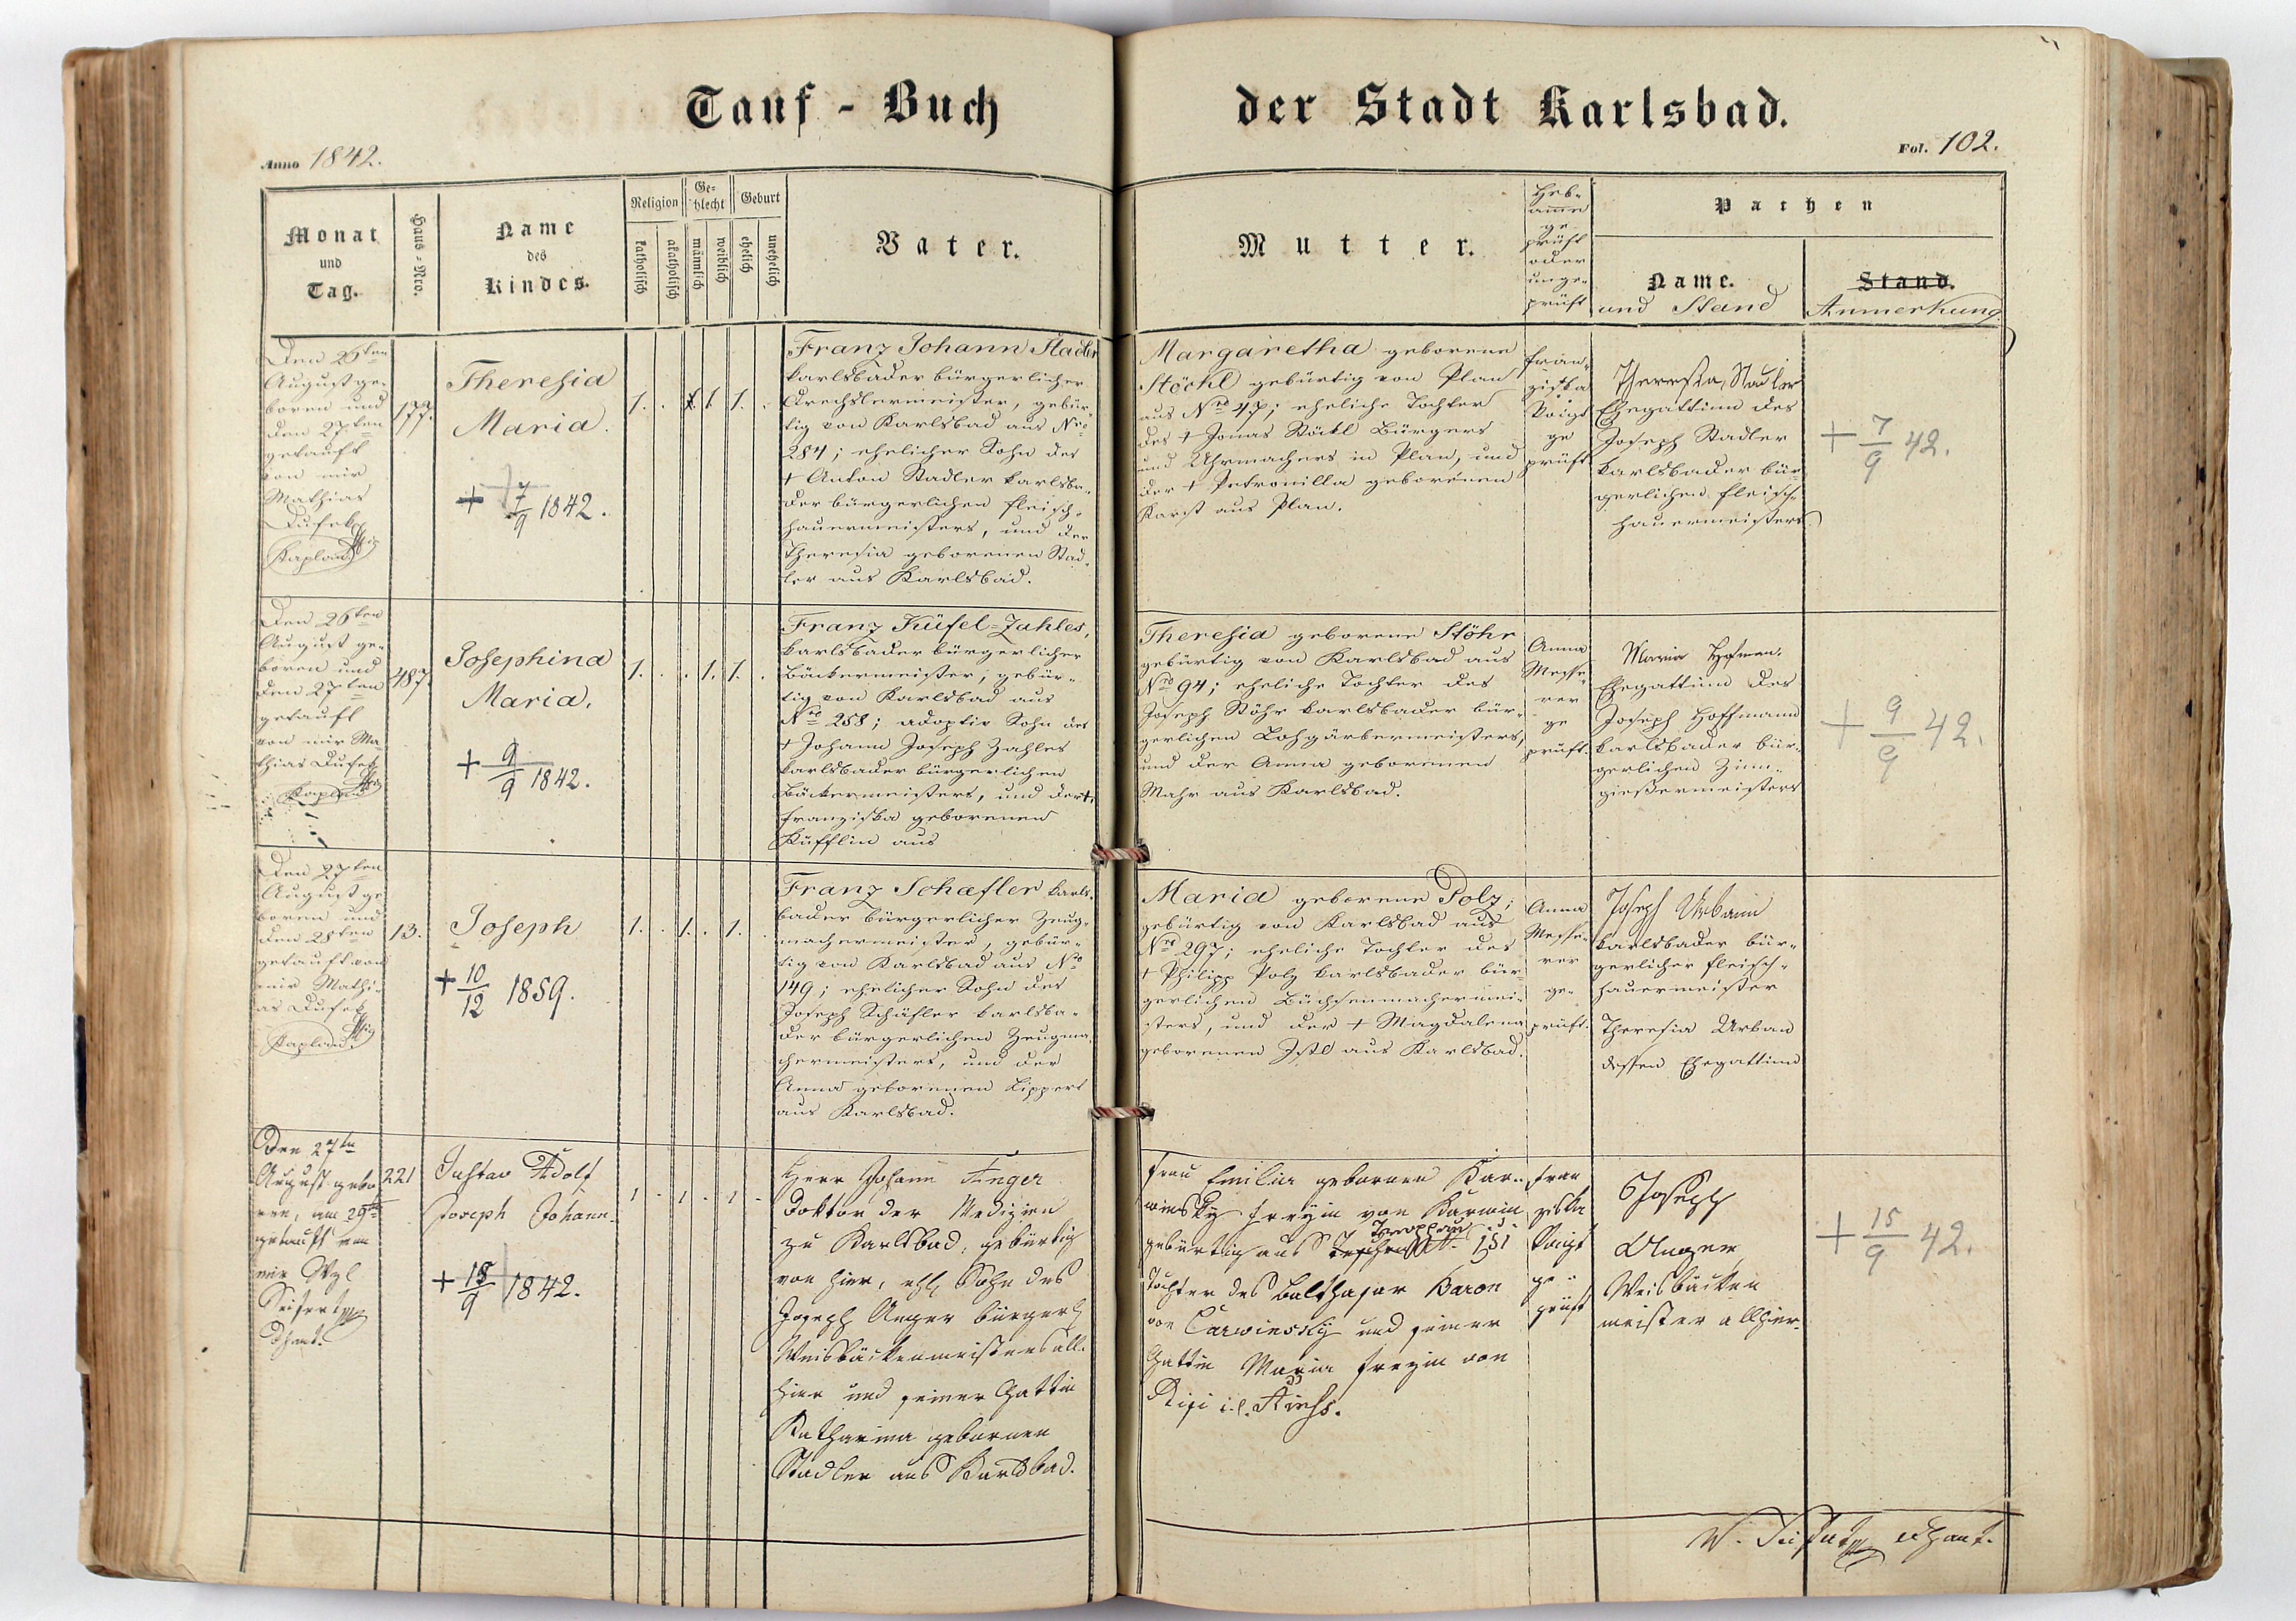 Tauf - Buch der Stadt Karlsbad.
Anno 1842.
Fol. 102.
Monat
und
Tag.
Haus-Nro.
Name
des
Kindes.
Religion
katholisch
akatholisch
Ge-
schlecht
männlich
weiblich
Geburt
ehelich
unehelich
Vater.
Mutter.
Heb-
amme
ge
prüft
oder
unge-
prüft
Pathen
Name.
und Stand
Stand.
Anmerkung.
Den 26ten
August ge-
boren und
den 27.ten
getauft
von mir
Mathias
Dusek
Kaplan
177.
Theresia
Maria.
+ 7/9 1842.
1. . 1. 1. .
Franz Johann Stadler
karlsbader bürgerlicher
Drechslermeister, gebür-
tig von Karlsbad aus Nro
284; ehelicher Sohn des
+ Anton Stadler karlsba-
der bürgerlichen Fleisch-
hauermeisters, und der
Theresia geborenen Stad-
ler aus Karlsbad.
Margaretha geborene
Stöckl gebürtig von Plan
aus Nro 47; eheliche Tochter
des + Jonas Stöckl Bürgers
und Uhrmachers in Plan, und
der + Petronilla geborenen
Karst aus Plan.
Fran-
ziska
Voigt
ge
prüft
Theresia Stadler
Ehegattinn des
Joseph Stadler
karlsbader bür-
gerlichen Fleisch-
hauermeisters
+ 7/9 42.
Den 26ten
August ge-
boren und
den 27ten
getauft
von mir Ma-
thias Dusek
Kaplan
487.
Josephina
Maria.
+ 9/9 1842.
1. . . 1. 1. .
Franz Küfel-Zahles,
karlsbader bürgerlicher
Bäckermeister, gebür-
tig von Karlsbad aus
Nro 258; adoptiv Sohn des
+ Johann Joseph Zahles
karlsbader bürgerlichen
Bäckermeisters, und der +
Franziska geborenen
Küfflin aus
Theresia geborene Stöhr
gebürtig von Karlsbad aus
Nro 94; eheliche Tochter des
Joseph Stöhr karlsbader bür-
gerlichen Lohgärbermeisters,
und der Anna geborenen
Mahr aus Karlsbad.
Anna
Messe-
rer
ge
prüft.
Maria
Ehegattinn des
Joseph Hoffmann
karlsbader bür-
gerlichen Zinn-
gießermeisters
+ 9/9 42.
Den 27ten
August ge
boren und
den 28ten
getauft von
mir Mathi-
as Dusek
Kaplan
13.
Joseph
+ 10/12 1859.
1. . 1. . 1. .
Franz Schæfler karls-
bader bürgerlicher Zeug-
machermeister, gebür-
tig von Karlsbad aus Nro
149; ehelicher Sohn des
Joseph Schäfler karlsba-
der bürgerlichen Zeugma-
chermeisters, und der
Anna geborenen Lippert
aus Karlsbad.
Maria geborene Polz;
gebürtig von Karlsbad aus
Nro 297; eheliche Tochter des
+ Philipp Polz karlsbader bür-
gerlichen Büchsenmachermei-
sters, und der + Magdalena
geborenen aus Karlsbad.
Anna
Messe-
rer
ge-
prüft.
Joseph Urbann
karlsbader bür-
gerlicher Fleisch-
hauermeister
Theresia Urban
dessen Ehegattinn
Den 27ten
August gebo
ren, am 29ten
getauft von
mir
Seifert
Dechant.
221
Gustav Adolf
Joseph Johann.
+ 15/9 1842.
1 . 1 . 1 .
Herr Johann Anger
Doktor der Medizin
zu Karlsbad, gebürtig
von hier, ehl. Sohn des
Joseph Anger bürgerl.
Weisbäckenmeisters all-
hier und seiner Gattin
Katharina gebornen
Stadler aus Karlsbad.
Frau Emilia geborene Kar-
winsky Freyin von Karwin
Troppau
gebürtig aus Teschen N. 151
Tochter des Balthasar Baron
von Carwinsky und seiner
Gattin Maria Freyin von
Fran
ziska
Voigt
ge-
prüft
Joseph
Anger
Weisbäcken
meister allhier.
+ 15/9 42.
W. Seifert Dechant.